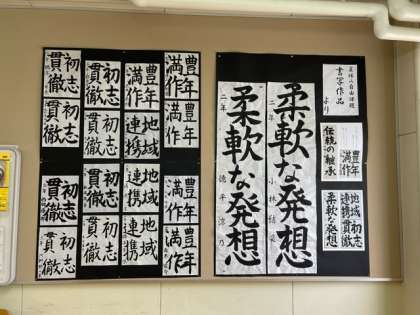 夏休み自由課題
書写作品
より
豊年
満作
伝統の継承
初志貫徹
地域連携
柔軟な発想
柔軟な発想
二年 小林
柔軟な発想
二年
豊年
満作
豊年
満作
豊年
満作
豊年
満作
初志
貫徹
地域
連携
地域
連携
地域
連携
初志
貫徹
初志
貫徹
初志
貫徹
初志
貫徹
初志
貫徹
初志
貫徹
初志
貫徹
初志
貫徹